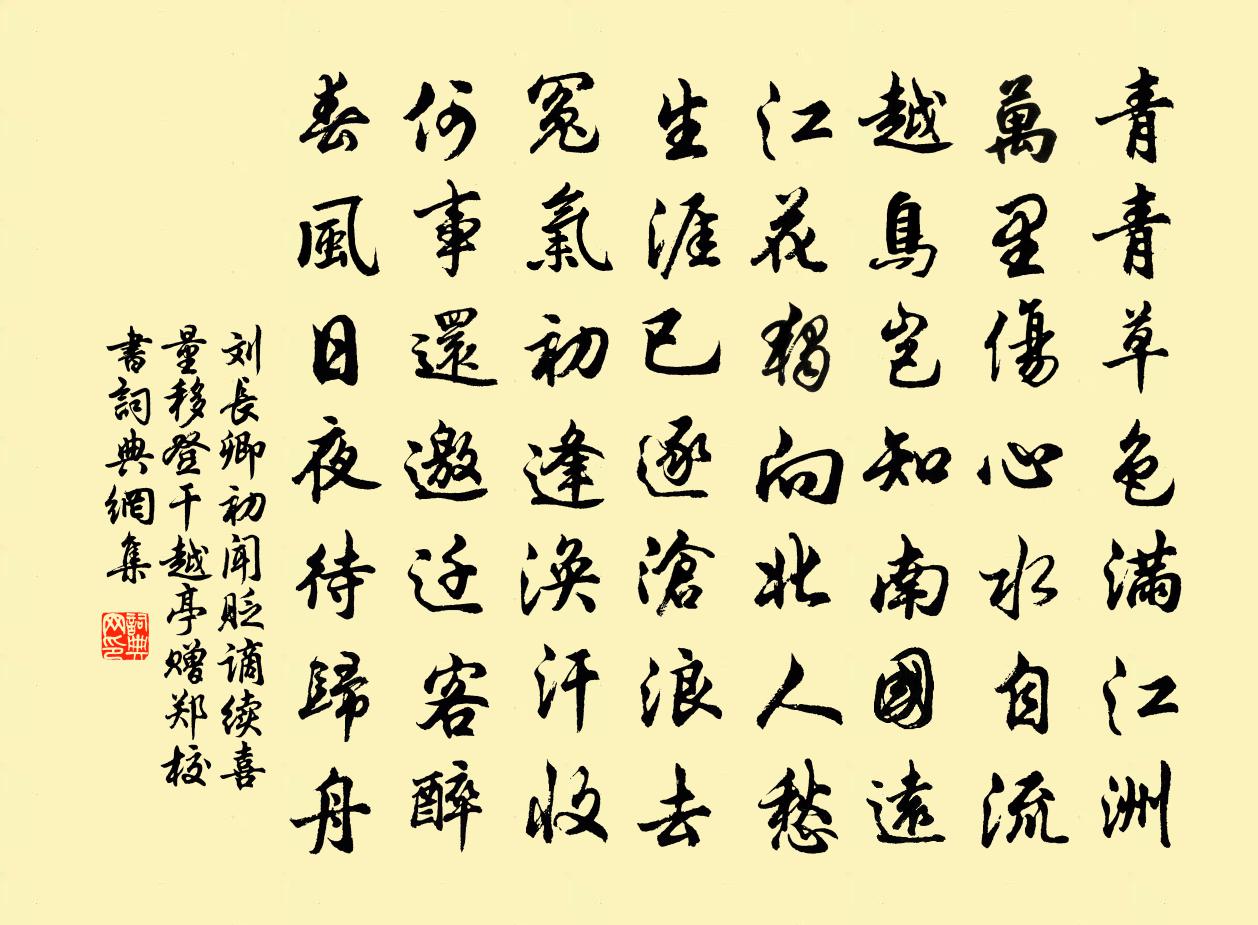 青青草色滿江洲
萬里傷心水自流
越鳥岂知南國遠
江花獨向北人愁
生涯已逐滄浪去
冤氣初逢渙汗收
何事還邀迁客醉
春風日夜待歸舟
刘長卿初闻貶谪续喜
量移登干越亭赠郑校
書詞典網集
詞典
网印